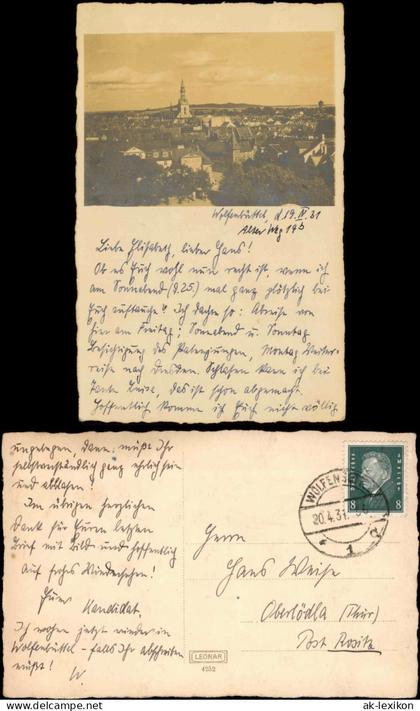 Wolfenbüttel, d. 19. IV. 31
Alter Weg 19b
Liebe Elisabeth, lieber Hans!
Ob es Euch wohl nun recht ist, wenn ich
am Sonnabend (d. 25.) mal ganz plötzlich bei
Euch auftauche? Ich dachte so: Abreise von
hier am Freitag; Sonnabend u. Sonntag
Besichtigung des Patenjungen, Montag Weiter-
reise nach Dresden. Schlafen kann ich bei
Tante Luise, das ist schon abgemacht.
Hoffentlich komme ich Euch nicht völlig
ungelegen, dann müßt Ihr
selbstverständlich ganz ehrlich sein
und absagen!
Im übrigen herzlichen
Dank für Euren letzten
Brief mit Bild und hoffentlich
auf frohes Wiedersehen!
Euer
Kandidat
Ich wohne jetzt wieder in
Wolfenbüttel – falls Ihr abschreiben
müßt!
Herrn
Hans Weise
Oberlödla (Thür)
Post Rositz
20.4.31.
8 8
LEONAR
4252
ak-lexikon.com